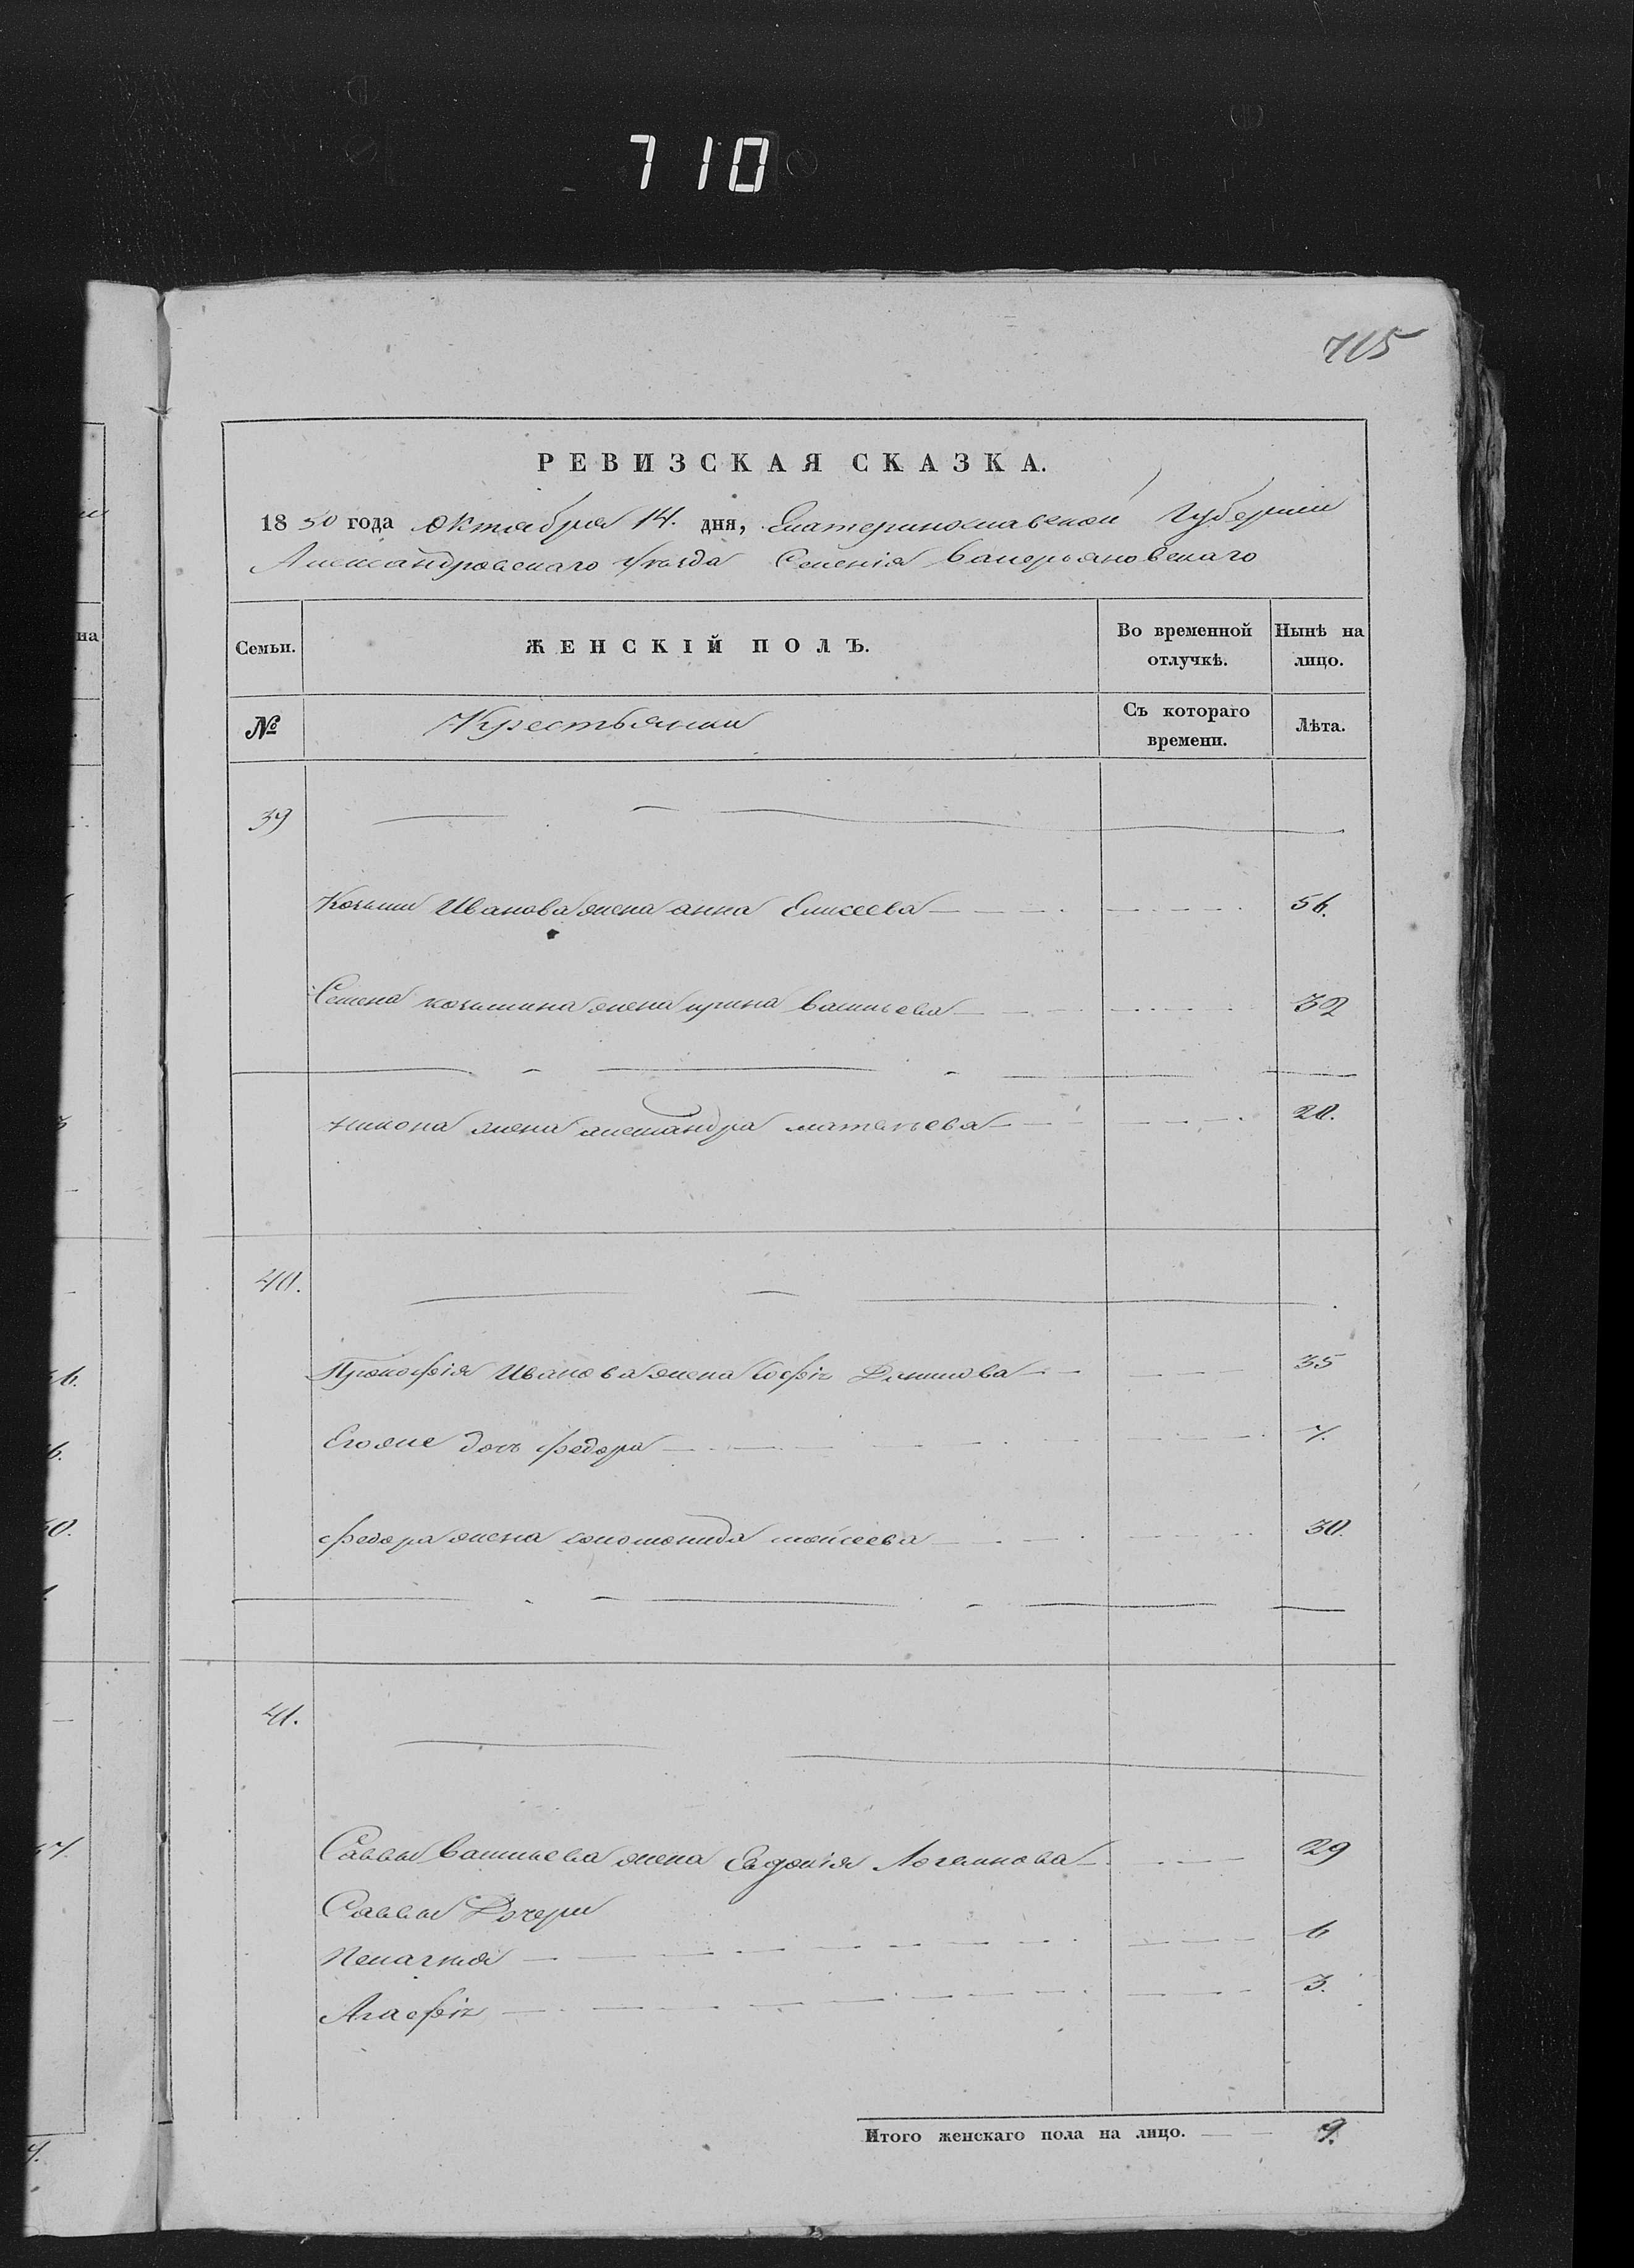 710
715
РЕВИЗСКАЯ СКАЗКА.
1850 года Октября 14. дня, Екатеринославской Губернии
Александровскаго уезда Селенія Валерьяновскаго
Семьи. ЖЕНСКІЙ ПОЛЪ. Во временной отлучкѣ. Нынѣ на лицо.
№ Крестьянки Съ котораго времени. Лѣта.
39
Козьмы Иванова жена анна Елисеева 56.
Семена козьмина жена ирина васильева 32
никона жена александра матвеева 20.
40.
Прокофія Иванова жена Софія 35
Егоже дочь федора 7.
федора жена соломонида моисеева 30.
41.
Саввы васильева жена Евдокія Логвинова 29
Саввы Дочери
Пелагия 6
Агафія 3.
Итого женскаго пола на лицо. 9.